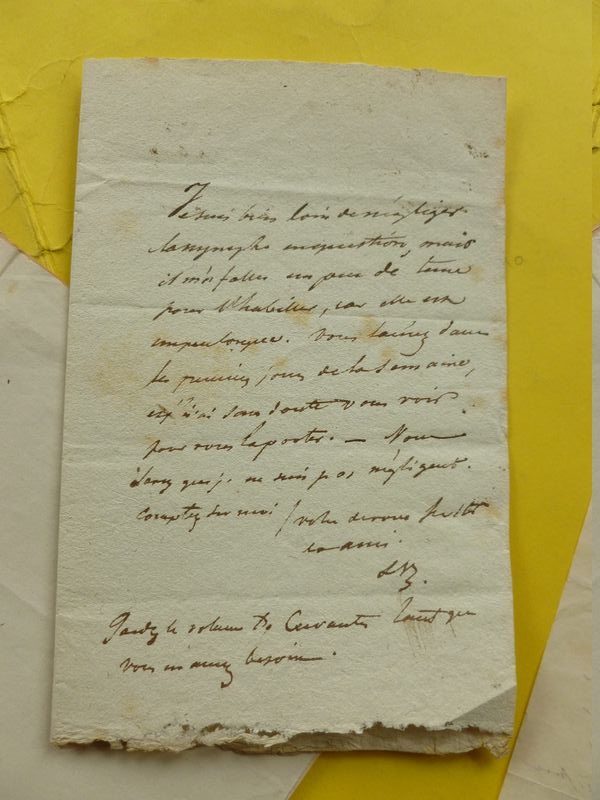 Je suis bien loin de négliger
la nymphe en question, mais
il m'a fallu un peu de tems
pour l'habiller, car elle est
un peu longue. Vous l'aurez dans
les premiers jours de la semaine,
et j'irai sans doute vous voir
pour vous la porter. — Vous
savez que je ne suis pas négligent.
comptez sur moi / votre dévoué
et ami.
Gardez le volume De Cervantes tant que
vous en aurez besoin.